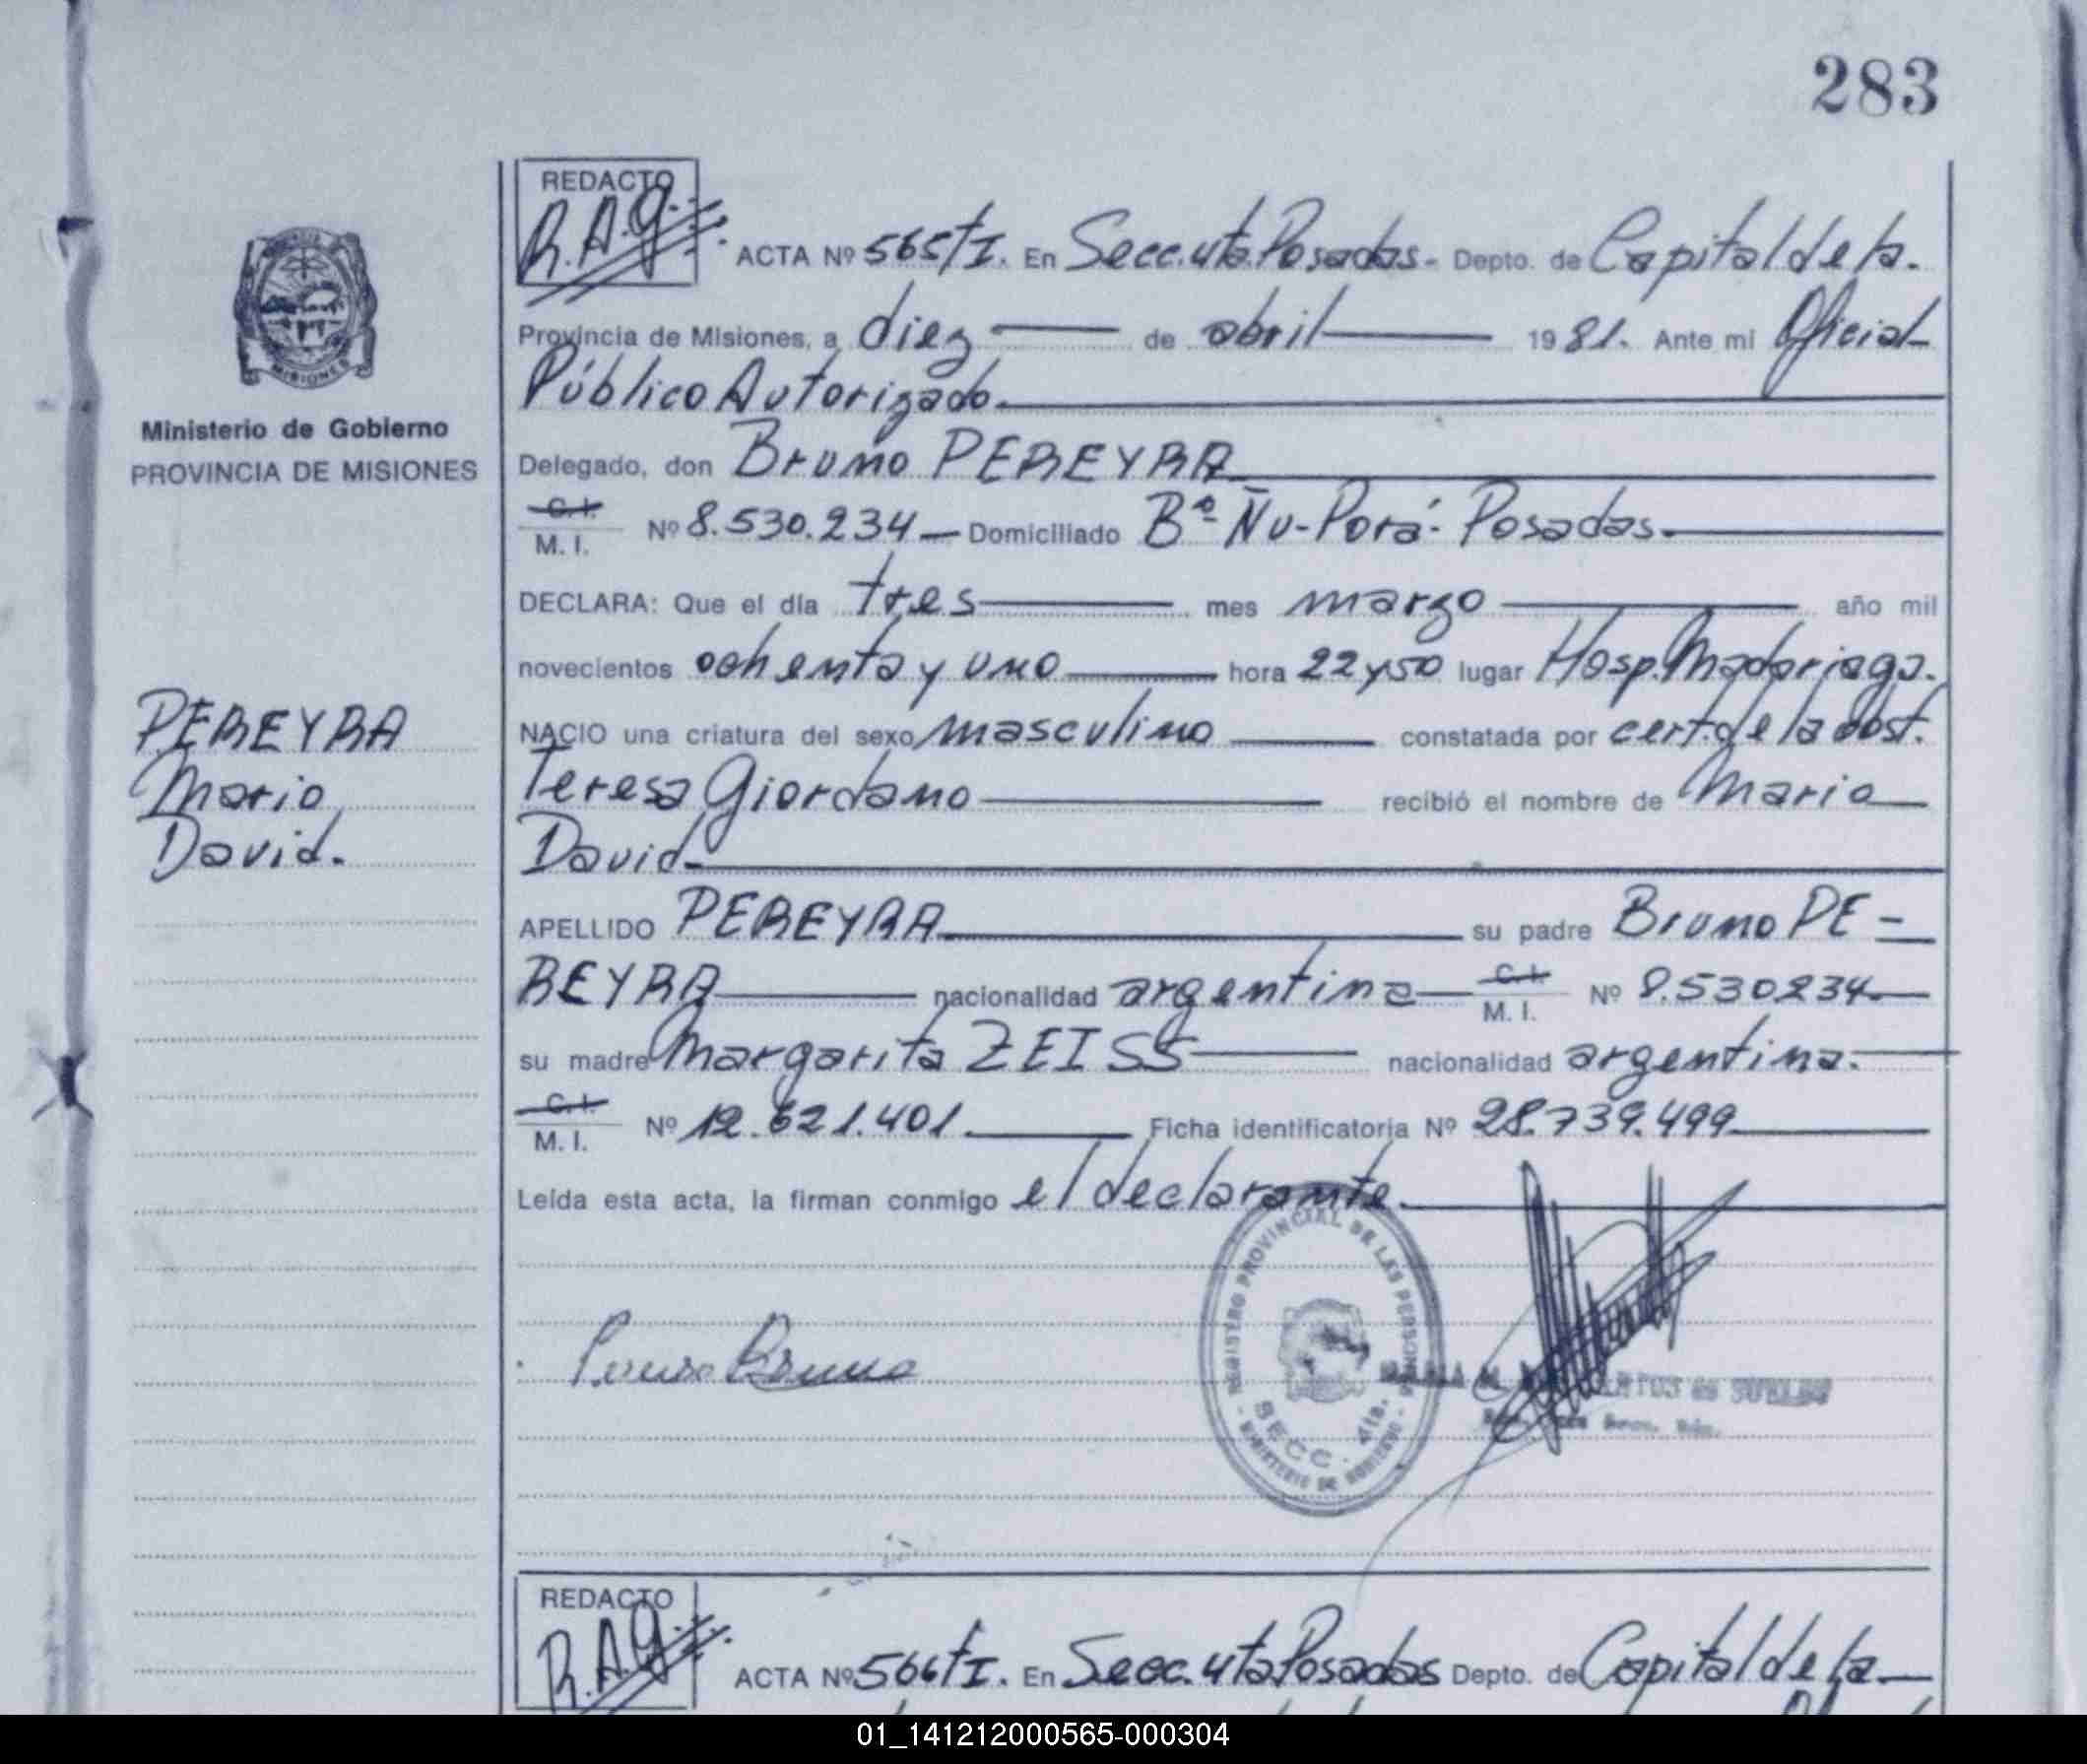 283
REDACTO
R.A.G.
ACTA Nº 565/tI. En Secc. 4ta. Posadas.- Depto. de Capital de la.
MISIONES
Provincia de Misiones, a diez de abril 1981. Ante mi Oficial
Público Autorizado.
Ministerio de Gobierno
PROVINCIA DE MISIONES
Delegado, don Bruno PEREYRA
C. I.
M. I. Nº 8.530.234 — Domiciliado Bº Ñu-Porá- Posadas.
DECLARA: Que el día tres mes marzo año mil
novecientos ochenta y uno hora 22 y 50 lugar Hosp. Madariaga.
PEREYRA
Mario
David.
NACIO una criatura del sexo masculino constatada por cert. de la obst.
Teresa Giordano recibió el nombre de Mario
David
APELLIDO PEREYRA su padre Bruno PE-
REYRA nacionalidad argentina C. I.
M. I. Nº 8.530234
su madre Margarita ZEISS nacionalidad argentina.
C. I.
M. I. Nº 12.621.401. Ficha identificatoria Nº 28.739.499
Leída esta acta, la firman conmigo el declarante.
REGISTRO PROVINCIAL DE LAS PERSONAS
SECC. 4ta.
MINISTERIO DE GOBIERNO
Bruno
REDACTO
R.A.G.
ACTA Nº 566/tI. En Secc. 4ta Posadas Depto. de Capital de la
01_141212000565-000304